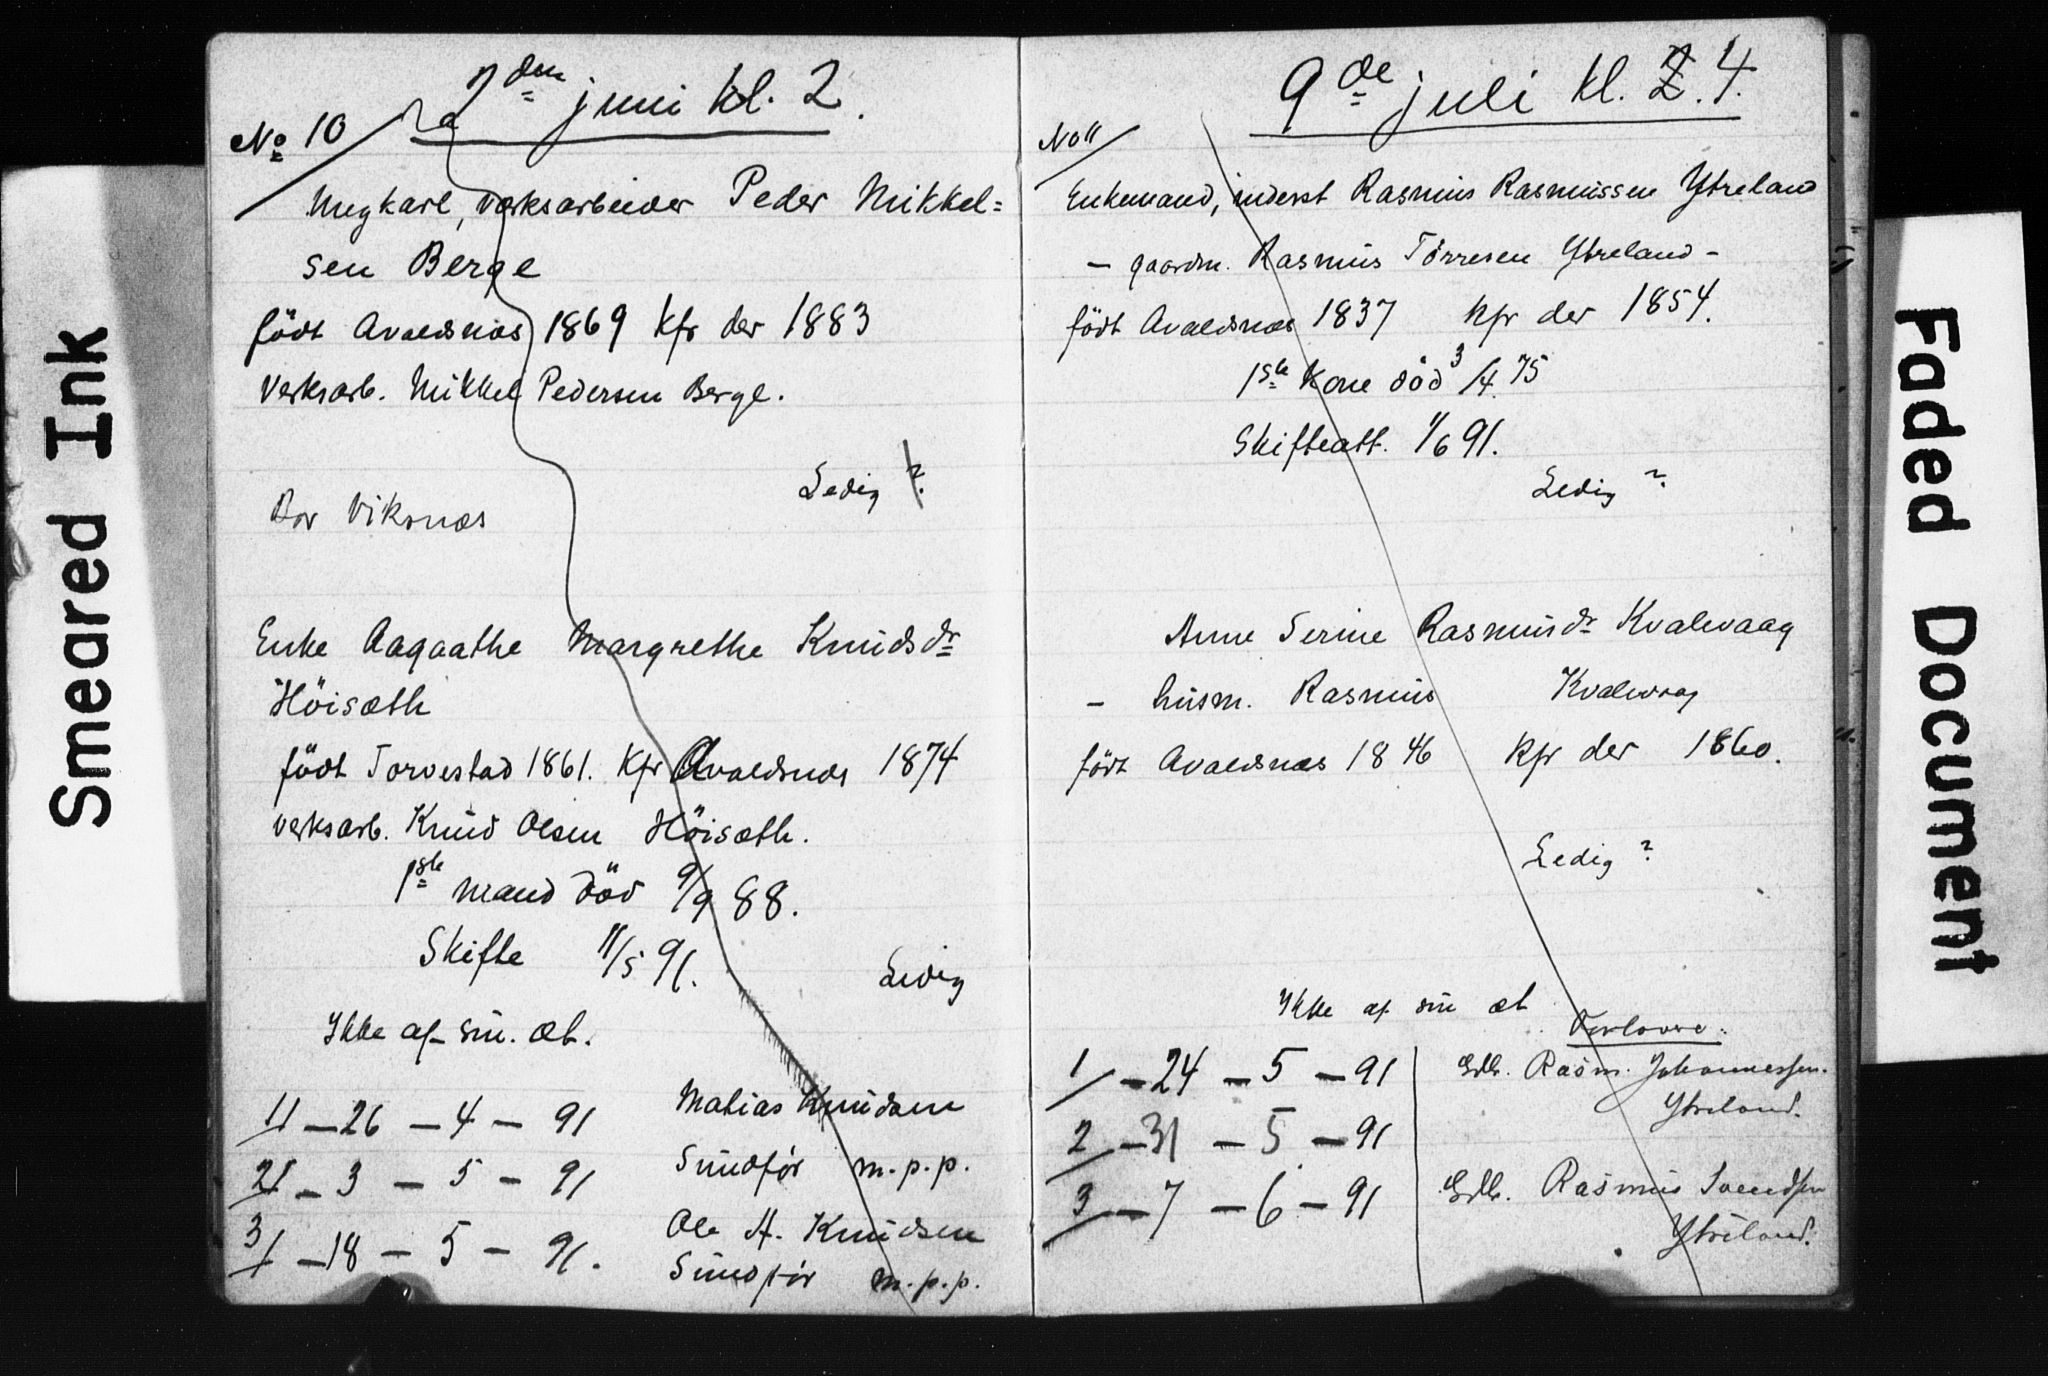 Smeared Ink
2den juni kl. 2.
No 10
Ungkarl, værksarbeider Peder Mikkel=
sen Berge
født Avaldsnæs 1869 kfr der 1883
Verksarb. Mikkel Pedersen Berge.
Ledig ?
Bor Viksnæs
Enke Aagaathe Margrethe Knudsdr
Höisæth
født Torvestad 1861. kfr Avaldsnæs 1874
verksarb. Knud Olsen Höisæth.
1ste mand död 9/9 88.
Skifte 11/5 91.
Ledig
Ikke af sm. æt.
1/ – 26 – 4 – 91
2/ – 3 – 5 – 91
3/ – 18 – 5 – 91.
Matias Knudsen
Sundför m.p.p.
Ole A. Knudsen
Sundför m.p.p.
9de juli kl. 2. 4.
No 11
Enkemand, inderst Rasmus Rasmussen Ytreland
– gaardm. Rasmus Törresen Ytreland –
født Avaldsnæs 1837 kfr der 1854.
1ste kone död 3/4 75
Skifteatt. 1/6 91.
Ledig ?
Anne Serine Rasmusdr Kvalevaag
– husm. Rasmus Kvalevaag
født Avaldsnæs 1846 kfr der 1860.
Ledig ?
Ikke af sm æt
Forlovere:
1/ – 24 – 5 – 91
2/ – 31 – 5 – 91
3/ – 7 – 6 – 91
Gdbr. Rasm. Johannessen.
Ytreland.
Gdbr. Rasmus Svendsen
Ytreland.
Faded Document